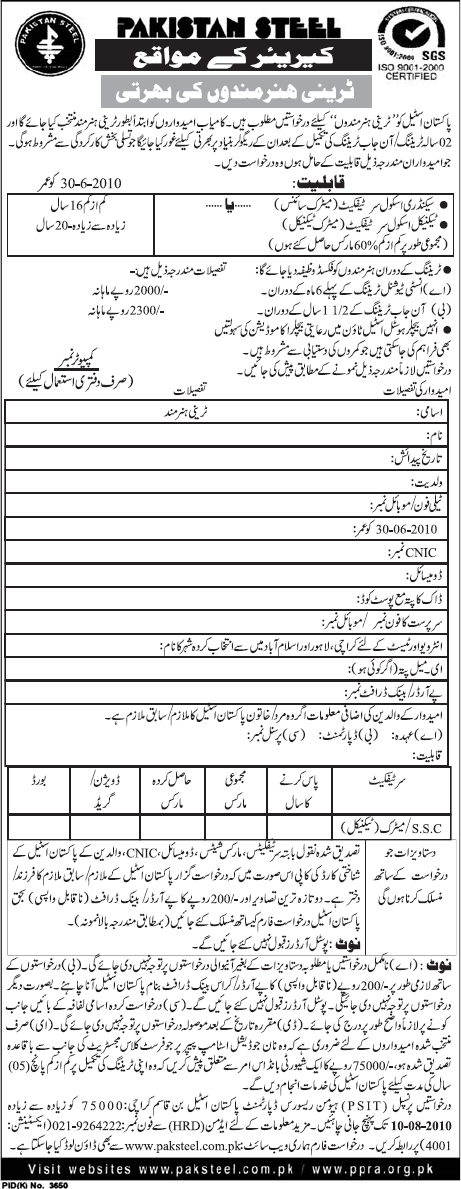 PAKISTAN STEEL
PAKISTAN STEEL
کیریئر کے مواقع
ٹرینی ہنرمندوں کی بھرتی
ISO 9001:2000
SGS
ISO 9001-2000
CERTIFIED
پاکستان اسٹیل کو ''ٹرینی ہنرمندوں'' کیلئے درخواستیں مطلوب ہیں۔ کامیاب امیدواروں کو ابتداً بطور ٹرینی ہنرمند منتخب کیا جائے گا اور
02 سالہ ٹریننگ/آن جاب ٹریننگ کی تکمیل کے بعد ان کے ریگولر بنیاد پر بھرتی کیلئے غور کیا جائیگا جو تسلی بخش کارکردگی سے مشروط ہوگی۔
جو امیدواران مندرجہ ذیل قابلیت کے حامل ہوں وہ درخواست دیں۔
قابلیت:
30-6-2010 کو عمر
● سیکنڈری اسکول سرٹیفکیٹ (میٹرک سائنس) ...... یا ......
کم از کم 16 سال
● ٹیکنیکل اسکول سرٹیفکیٹ (میٹرک ٹیکنیکل)
زیادہ سے زیادہ-20 سال
(مجموعی طور پر کم از کم 60% مارکس حاصل کئے ہوں)
● ٹریننگ کے دوران ہنرمندوں کو فکسڈ وظیفہ دیا جائے گا: تفصیلات مندرجہ ذیل ہیں:-
(اے) انسٹی ٹیوشنل ٹریننگ کے پہلے 6 ماہ کے دوران۔ 2000/- روپے ماہانہ
(بی) آن جاب ٹریننگ کے 1 1/2 سال کے دوران۔ 2300/- روپے ماہانہ
● انہیں بیچلر ہوسٹل اسٹیل ٹاؤن میں رعایتی بیچلر اکاموڈیشن کی سہولتیں
بھی فراہم کی جا سکتی ہیں جو کمروں کی دستیابی سے مشروط ہیں۔
درخواستیں لازماً مندرجہ ذیل نمونے کے مطابق پیش کی جائیں۔
کمپیوٹر نمبر
(صرف دفتری استعمال کیلئے)
امیدوار کی تفصیلات تفصیلات
اسامی: ٹرینی ہنرمند
نام:
تاریخ پیدائش:
ولدیت:
ٹیلی فون/موبائل نمبر:
30-06-2010 کو عمر:
CNIC نمبر:
ڈومیسائل:
ڈاک کا پتہ مع پوسٹ کوڈ:
سرپرست کا فون نمبر /موبائل نمبر:
انٹرویو اور ٹیسٹ کے لئے کراچی، لاہور اور اسلام آباد میں سے انتخاب کردہ شہر کا نام:
ای۔میل پتہ (اگر کوئی ہو):
پے آرڈر/بینک ڈرافٹ نمبر:
امیدوار کے والدین کی اضافی معلومات اگر وہ مرد/خاتون پاکستان اسٹیل کا ملازم/سابق ملازم ہے۔
(اے) عہدہ: (بی) ڈپارٹمنٹ: (سی) پرسنل نمبر:
قابلیت:
سرٹیفکیٹ | پاس کرنے کا سال | مجموعی مارکس | حاصل کردہ مارکس | ڈویژن/گریڈ | بورڈ
S.S.C/میٹرک (ٹیکنیکل)
دستاویزات جو
درخواست کے ساتھ
منسلک کرنا ہوں گی
تصدیق شدہ نقول بابتہ سرٹیفکیٹس، مارکس شیٹس، ڈومیسائل، CNIC، والدین کے پاکستان اسٹیل کے
شناختی کارڈ کی کاپی اس صورت میں کہ درخواست گزار پاکستان اسٹیل کے ملازم/سابق ملازم کا فرزند/
دختر ہے۔ دو تازہ ترین تصاویر اور 200/- روپے کا پے آرڈر/بینک ڈرافٹ (ناقابل واپسی) بحق
پاکستان اسٹیل درخواست فارم کیساتھ منسلک کئے جائیں (بمطابق مندرجہ بالا نمونہ)۔
نوٹ: پوسٹل آرڈرز قبول نہیں کئے جائیں گے۔
نوٹ: (اے) نامکمل درخواستیں یا مطلوبہ دستاویزات کے بغیر آنیوالی درخواستوں پر توجہ نہیں دی جائے گی۔ (بی) درخواستوں کے
ساتھ لازمی طور پر 200/- روپے (ناقابل واپسی) کا پے آرڈر/کراس بینک ڈرافٹ بنام پاکستان اسٹیل آنا چاہئے۔ بصورت دیگر
درخواستوں پر توجہ نہیں دی جائیگی۔ پوسٹل آرڈرز قبول نہیں کئے جائیں گے۔ (سی) درخواست کردہ اسامی لفافہ کے بائیں جانب
کونے پر لازماً واضح طور پر درج کی جائے۔ (ڈی) مقررہ تاریخ کے بعد موصولہ درخواستوں پر توجہ نہیں دی جائے گی۔ (ای) صرف
منتخب شدہ امیدواروں کے لئے ضروری ہے کہ وہ نان جوڈیشل اسٹامپ پیپر پر جو فرسٹ کلاس مجسٹریٹ کی جانب سے باقاعدہ
تصدیق شدہ ہو، 75000/- روپے کا ایک شیورٹی بانڈ اس امر سے متعلق پیش کریں کہ وہ اپنی ٹریننگ کی تکمیل پر کم از کم پانچ (05)
سال کی مدت کیلئے پاکستان اسٹیل کی خدمات انجام دیں گے۔
درخواستیں پرنسپل (PSIT) ہیومن ریسورس ڈپارٹمنٹ پاکستان اسٹیل بن قاسم کراچی: 75000 کو زیادہ سے زیادہ
10-08-2010 تک پہنچ جانی چاہئیں۔ مزید معلومات کے لئے ایڈمن (HRD) سے فون نمبر: 9264222-021 (ایکسٹینشن:
4001) پر رابطہ کریں۔ درخواست فارم ہماری ویب سائٹ: www.paksteel.com.pk سے بھی ڈاؤن لوڈ کیا جا سکتا ہے۔
Visit websites www.paksteel.com.pk / www.ppra.org.pk
PID(K) No. 3650